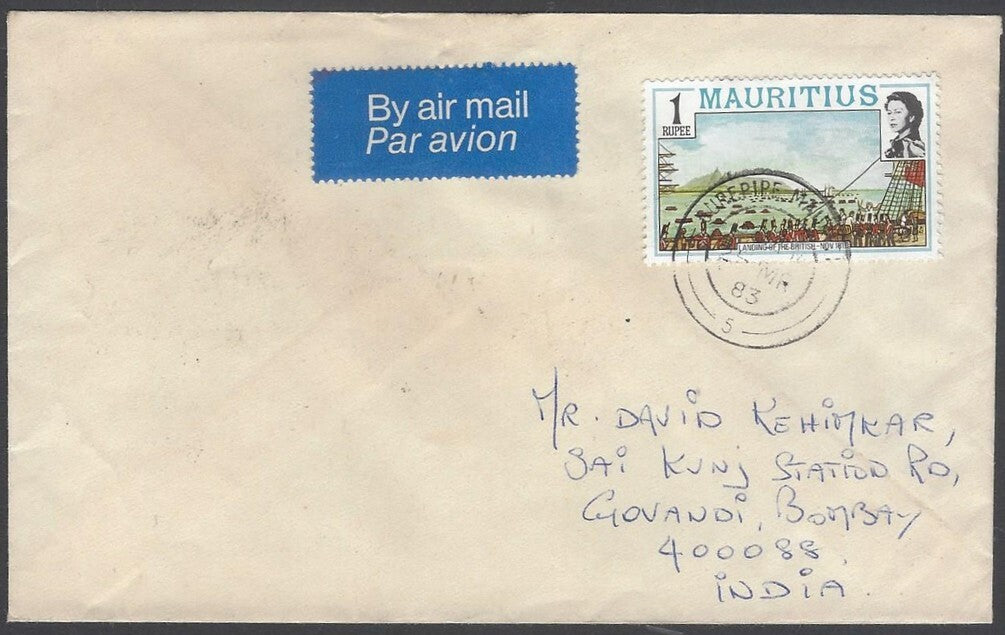 By air mail
Par avion
1
RUPEE
MAURITIUS
LANDING OF THE BRITISH - NOV 1810
MR
83
5
MR. DAVID KEHIMKAR,
SAI KUNJ STATION RD,
GOVANDI, BOMBAY
400088.
INDIA.